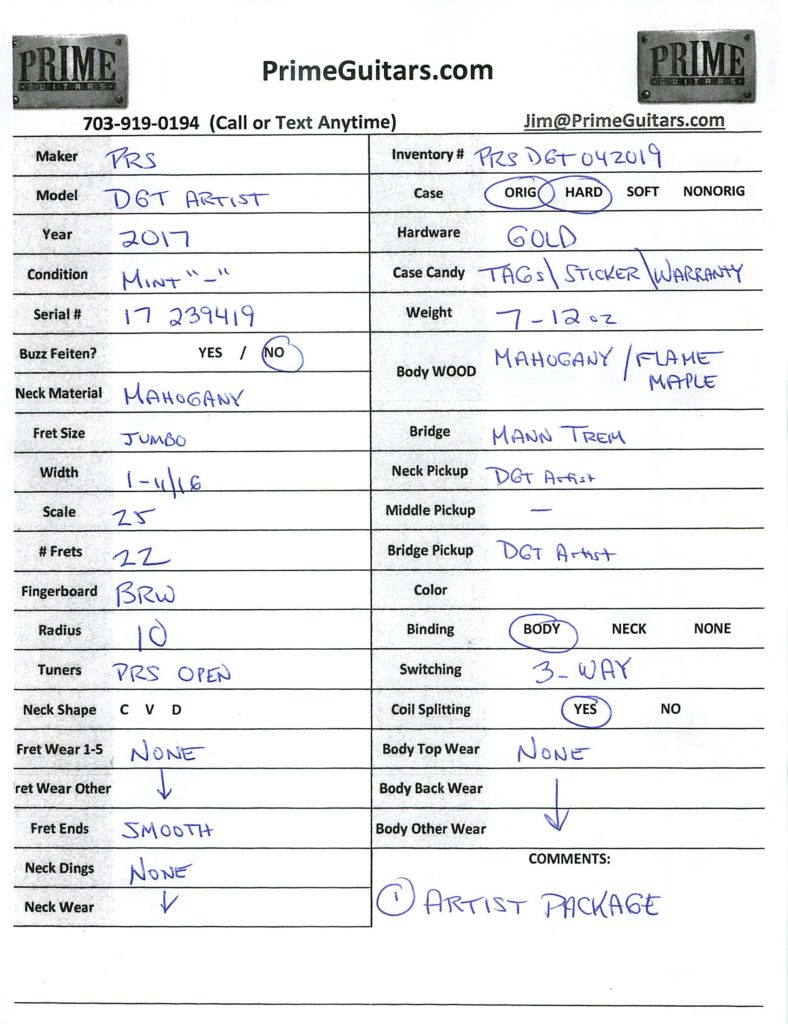 PRIME
GUITARS
PrimeGuitars.com
PRIME
GUITARS
703-919-0194 (Call or Text Anytime)
Jim@PrimeGuitars.com
Maker PRS
Model DGT ARTIST
Year 2017
Condition MINT "-"
Serial # 17 239419
Buzz Feiten? YES / NO
Neck Material MAHOGANY
Fret Size JUMBO
Width 1-11/16
Scale 25
# Frets 22
Fingerboard BRW
Radius 10
Tuners PRS OPEN
Neck Shape C V D
Fret Wear 1-5 NONE
ret Wear Other ↓
Fret Ends SMOOTH
Neck Dings NONE
Neck Wear ↓
Inventory # PRS DGT 042019
Case ORIG HARD SOFT NONORIG
Hardware GOLD
Case Candy TAGS\STICKER\WARRANTY
Weight 7-12oz
Body WOOD MAHOGANY / FLAME
MAPLE
Bridge MANN TREM
Neck Pickup DGT Artist
Middle Pickup —
Bridge Pickup DGT Artist
Color
Binding BODY NECK NONE
Switching 3-WAY
Coil Splitting YES NO
Body Top Wear NONE
Body Back Wear
Body Other Wear ↓
COMMENTS:
① ARTIST PACKAGE